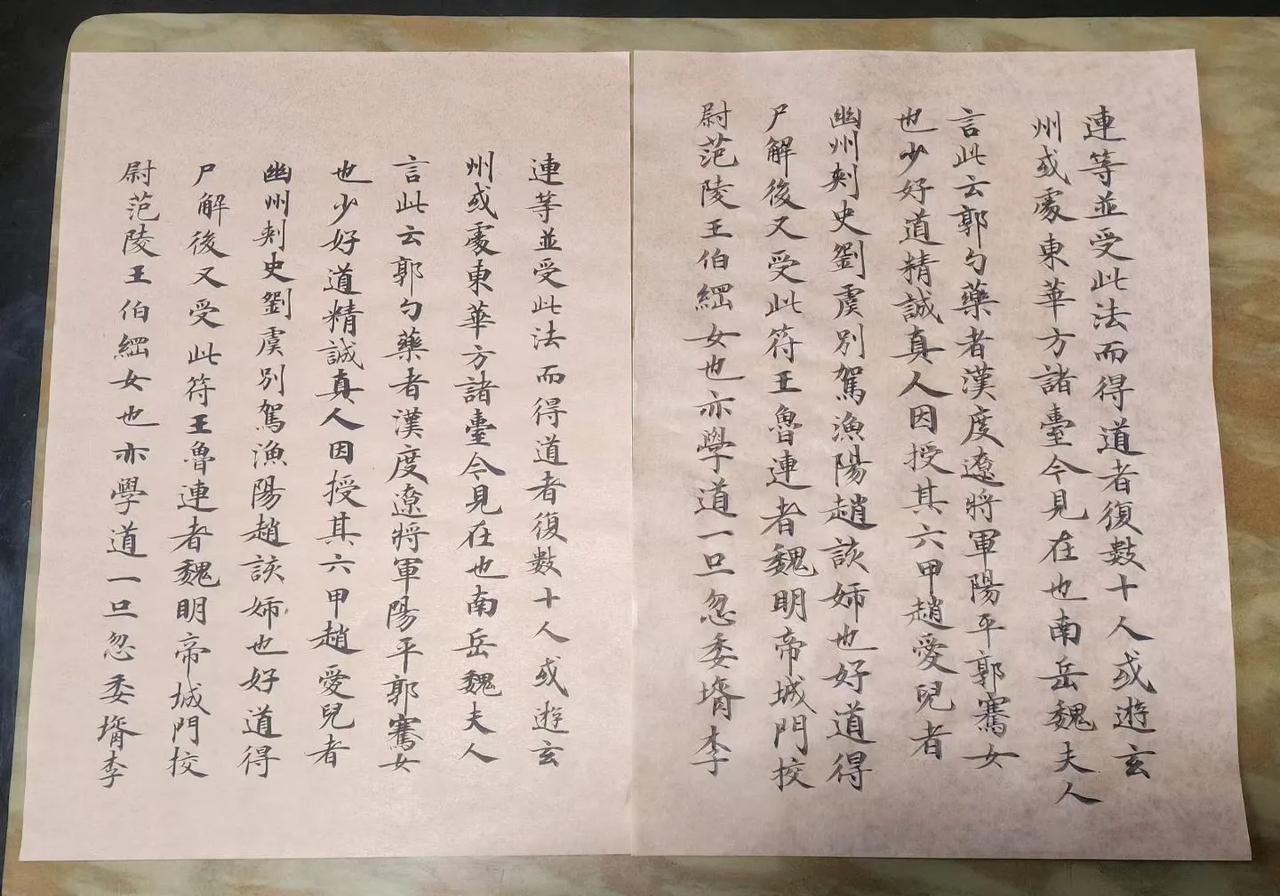 連等並受此法而得道者復數十人或遊玄
州或處東華方諸臺今見在也南岳魏夫人
言此云郭勺藥者漢度遼將軍陽平郭騫女
也少好道精誠真人因授其六甲趙愛兒者
幽州刾史劉虞別駕漁陽趙該姉也好道得
尸解後又受此符王魯連者魏明帝城門挍
尉范陵王伯綱女也亦學道一旦忽委壻李
連等並受此法而得道者復數十人或遊玄
州或處東華方諸臺今見在也南岳魏夫人
言此云郭勺藥者漢度遼將軍陽平郭騫女
也少好道精誠真人因授其六甲趙愛兒者
幽州刾史劉虞別駕漁陽趙該姉也好道得
尸解後又受此符王魯連者魏明帝城門挍
尉范陵王伯綱女也亦學道一旦忽委壻李